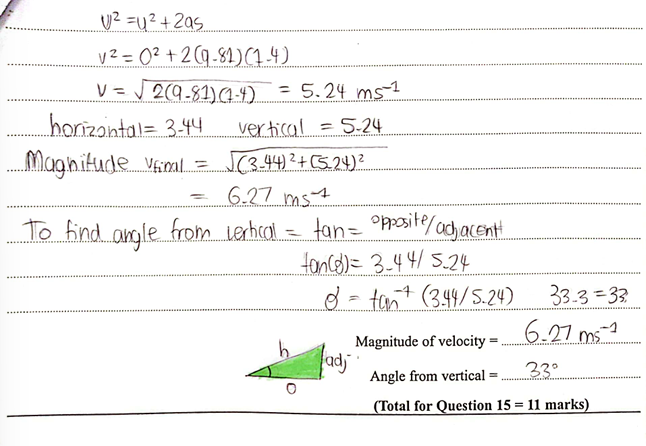 v² = u² + 2as
v² = 0² + 2(9.81)(1.4)
v = √2(9.81)(1.4) = 5.24 ms⁻¹
horizontal = 3.44 vertical = 5.24
Magnitude vfinal = √(3.44)²+(5.24)²
= 6.27 ms⁻¹
To find angle from vertical = tan = opposite/adjacent
tan(θ) = 3.44/5.24
θ = tan⁻¹ (3.44/5.24) 33.3 = 33
h
adj
o
Magnitude of velocity = 6.27 ms⁻¹
Angle from vertical = 33°
(Total for Question 15 = 11 marks)